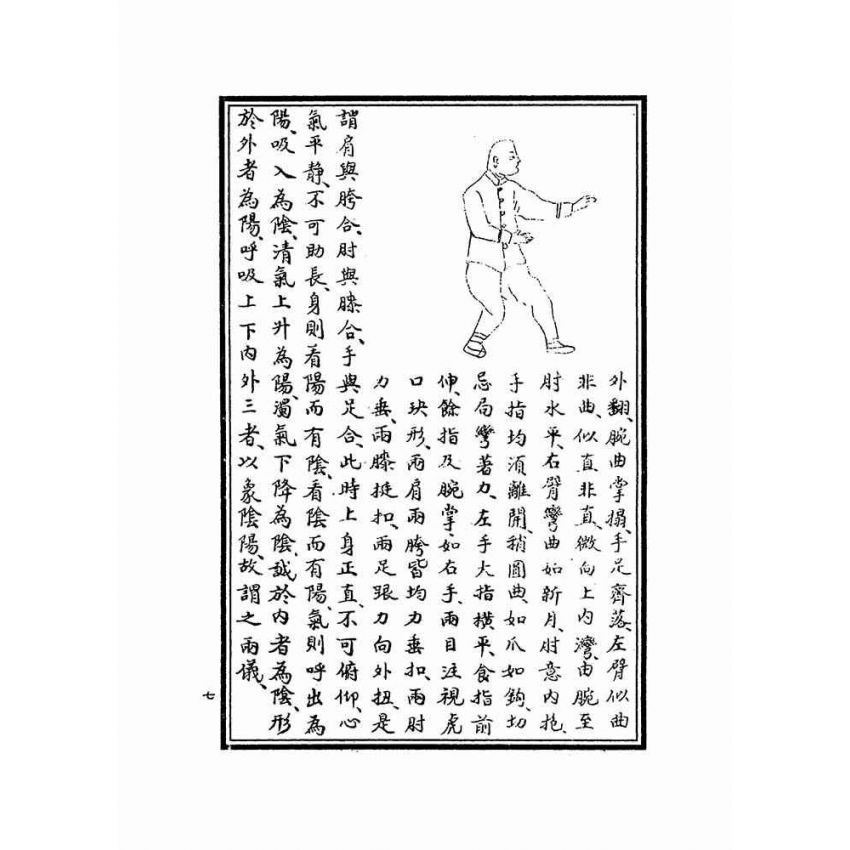 外翻、腕曲掌塌、手足齊落、左臂似曲
非曲、似直非直、微向上內灣、由腕至
肘水平、右臂彎曲如新月、肘意內抱、
手指均須離開、稍圓曲、如爪如鉤、切
忌局彎著力、左手大指橫平、食指前
伸、餘指及腕掌、如右手、兩目注視虎
口玦形、兩肩兩胯皆均力垂扣、兩肘
力垂、兩膝挺扣、兩足跟力向外扭、是
謂肩與胯合、肘與膝合、手與足合、此時上身正直、不可俯仰、心
氣平靜、不可助長、身則看陽而有陰、看陰而有陽、氣則呼出為
陽、吸入為陰、清氣上升為陽、濁氣下降為陰、蓛於內者為陰、形
於外者為陽、呼吸上下內外三者、以象陰陽、故謂之兩儀、
七